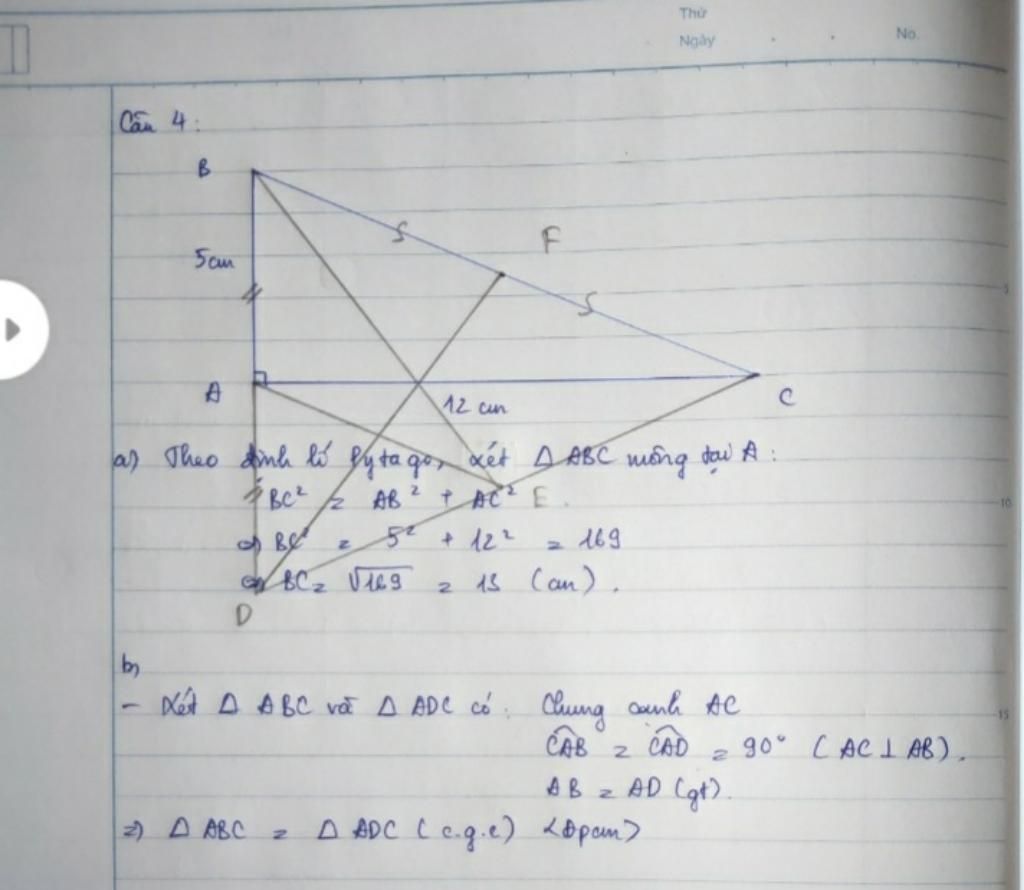 Thứ
Ngày
No.
Câu 4:
B
F
5cm
5
A
C
12 cm
a) Theo định lí Pytago, xét Δ ABC vuông tại A:
BC² = AB² + AC²
E
10
⇒ BC² = 5² + 12² = 169
⇒ BC = √169 = 13 (cm).
D
b)
- Xét Δ ABC và Δ ADC có: Chung cạnh AC
15
CAB = CAD = 90° (AC ⊥ AB).
AB = AD (gt).
⇒ Δ ABC = Δ ADC (c.g.c) <Đpcm>